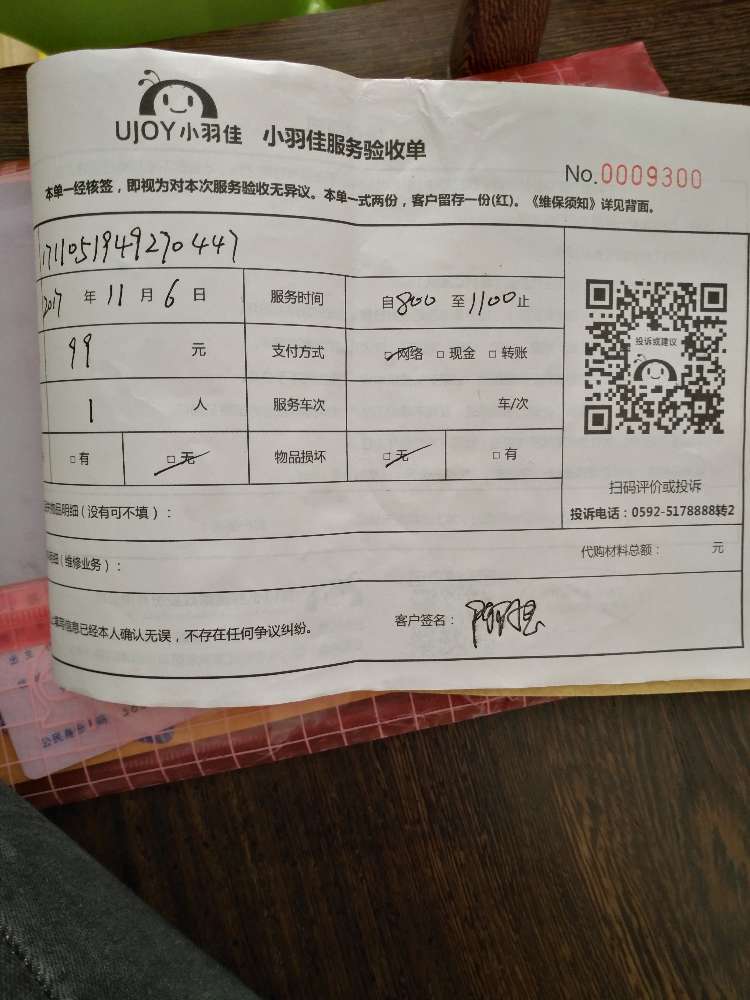 UJOY小羽佳 小羽佳服务验收单
No.0009300
本单一经核签，即视为对本次服务验收无异议。本单一式两份，客户留存一份(红)。《维保须知》详见背面。
1711051949270447
2017 年 11 月 6 日 服务时间 自 800 至 1100 止
99 元 支付方式 □网络 □现金 □转账
1 人 服务车次 车/次
□有 □无 物品损坏 □无 □有
投诉或建议
扫码评价或投诉
投诉电话：0592-5178888转2
物品明细（没有可不填）：
明细（维修业务）： 代购材料总额： 元
填写信息已经本人确认无误，不存在任何争议纠纷。 客户签名：
公民身份